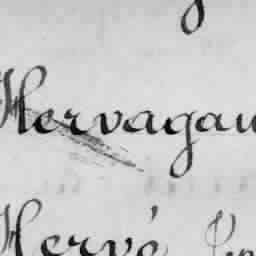 Hervagau
Hervé